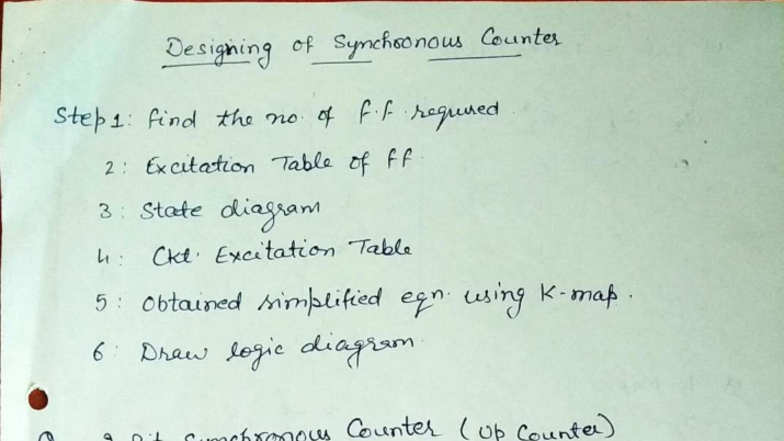 Designing of Synchronous Counter
Step 1: find the no. of f.f. required
2: Excitation Table of ff.
3: State diagram
4: Ckt. Excitation Table
5: Obtained simplified eqn. using K-map.
6: Draw logic diagram.
Synchronous Counter (Up Counter)